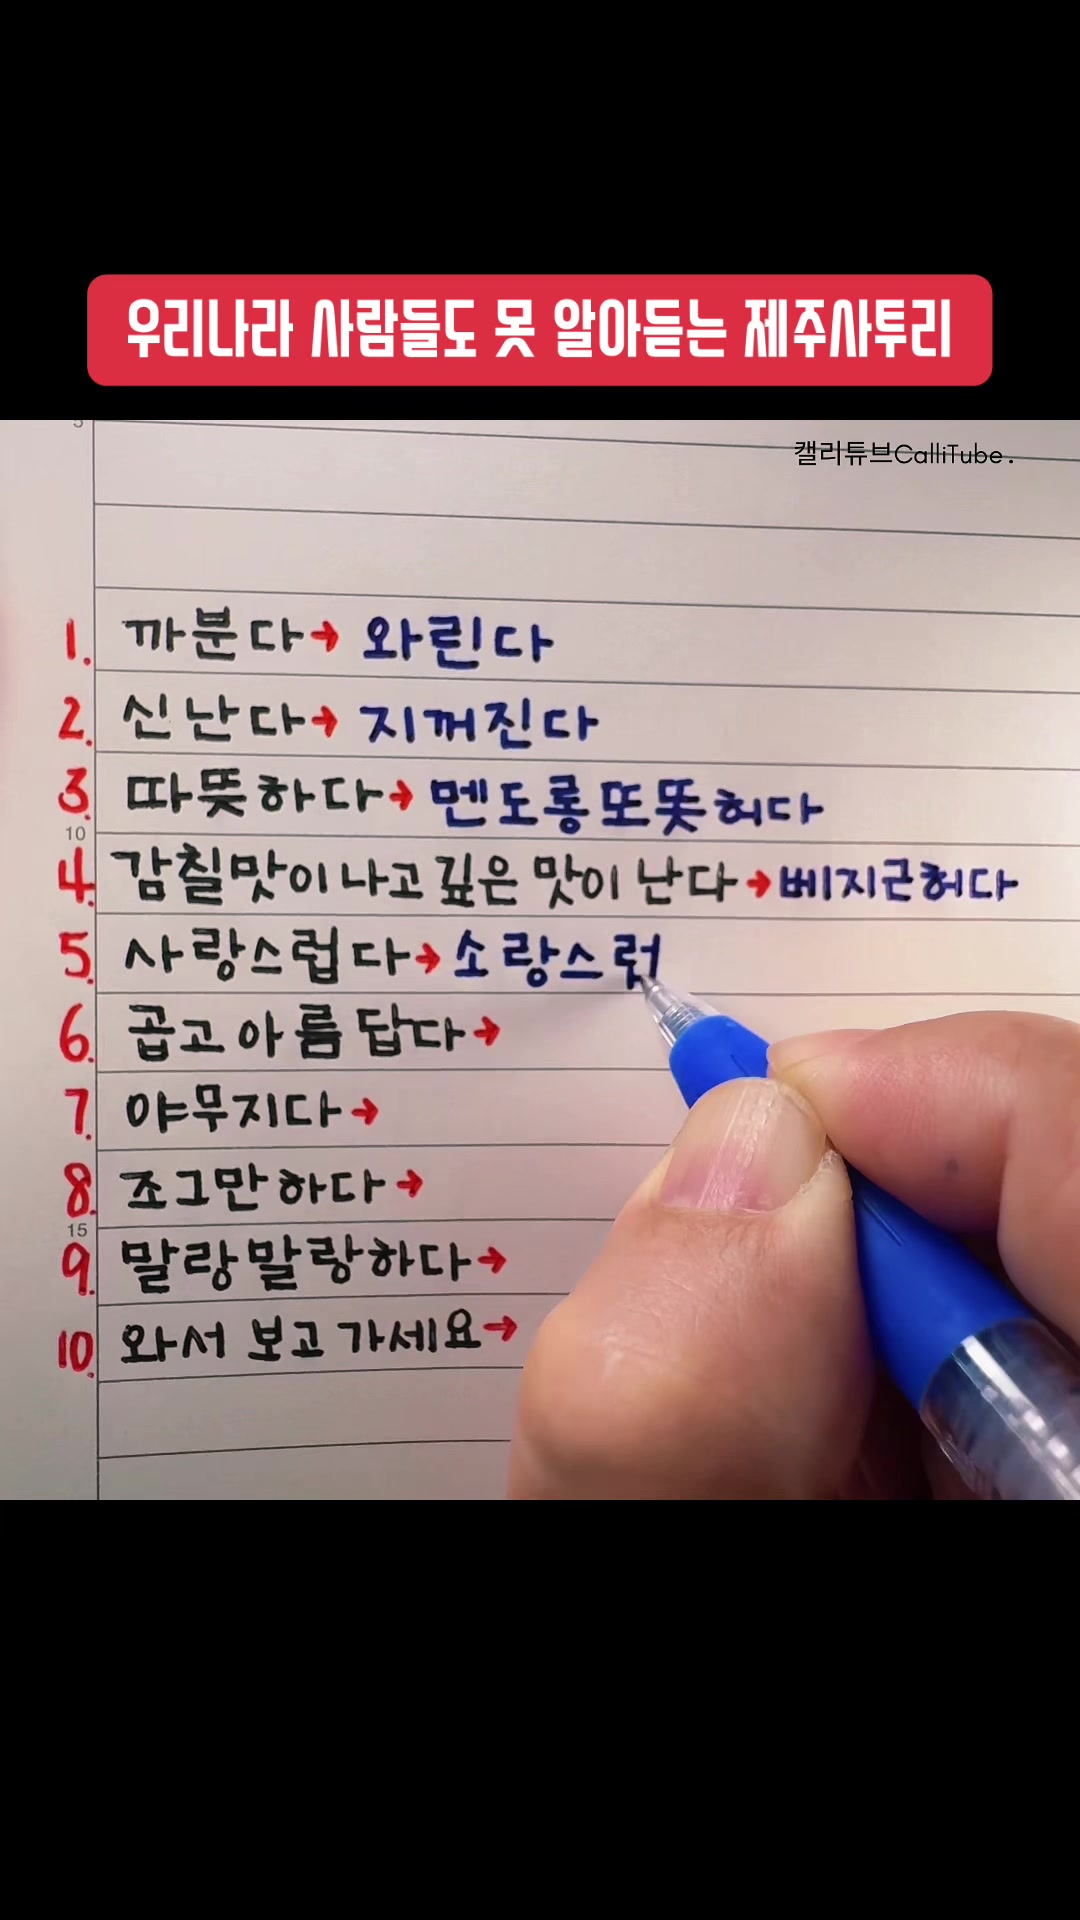 우리나라 사람들도 못 알아듣는 제주사투리
5
캘리튜브CalliTube.
1. 까분다→ 와린다
2. 신난다→ 지꺼진다
3. 따뜻하다→ 멘도롱또똣허다
10
4. 감칠맛이나고깊은 맛이 난다→베지근허다
5. 사랑스럽다→ 소랑스럽
6. 곱고아름답다→
7. 야무지다→
8. 조그만하다→
15
9. 말랑말랑하다→
10. 와서 보고가세요→